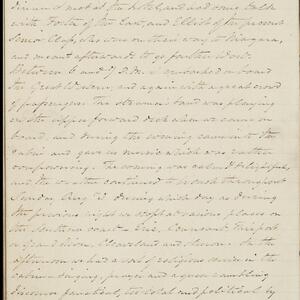 dinner & met at the hotel, and had some talk
with Forte of the East, and Elliot of the present
Senior Class, who was on their way to Niagara,
and meant afterwards to go farther West.
Between 6 and 7 P.M. I embarked on board
the Great Western, and again with a great crowd
of passengers. The steamer's band was playing
on the upper forward deck when we came on
board, and during the evening came into the
cabin and gave us music which was rather
overpowering. The evening was calm & delightful,
and the weather continued so much throughout
Sunday, Aug. during which day as during
the previous night we stopt at various places on
the southern coast – Erie, Conneaut, Fairport
or Grand River, Cleaveland and Huron. In the
afternoon we had a sort of religious service in the
cabin – singing, prayer and a queer rambling
discourse, fanatical, and political by